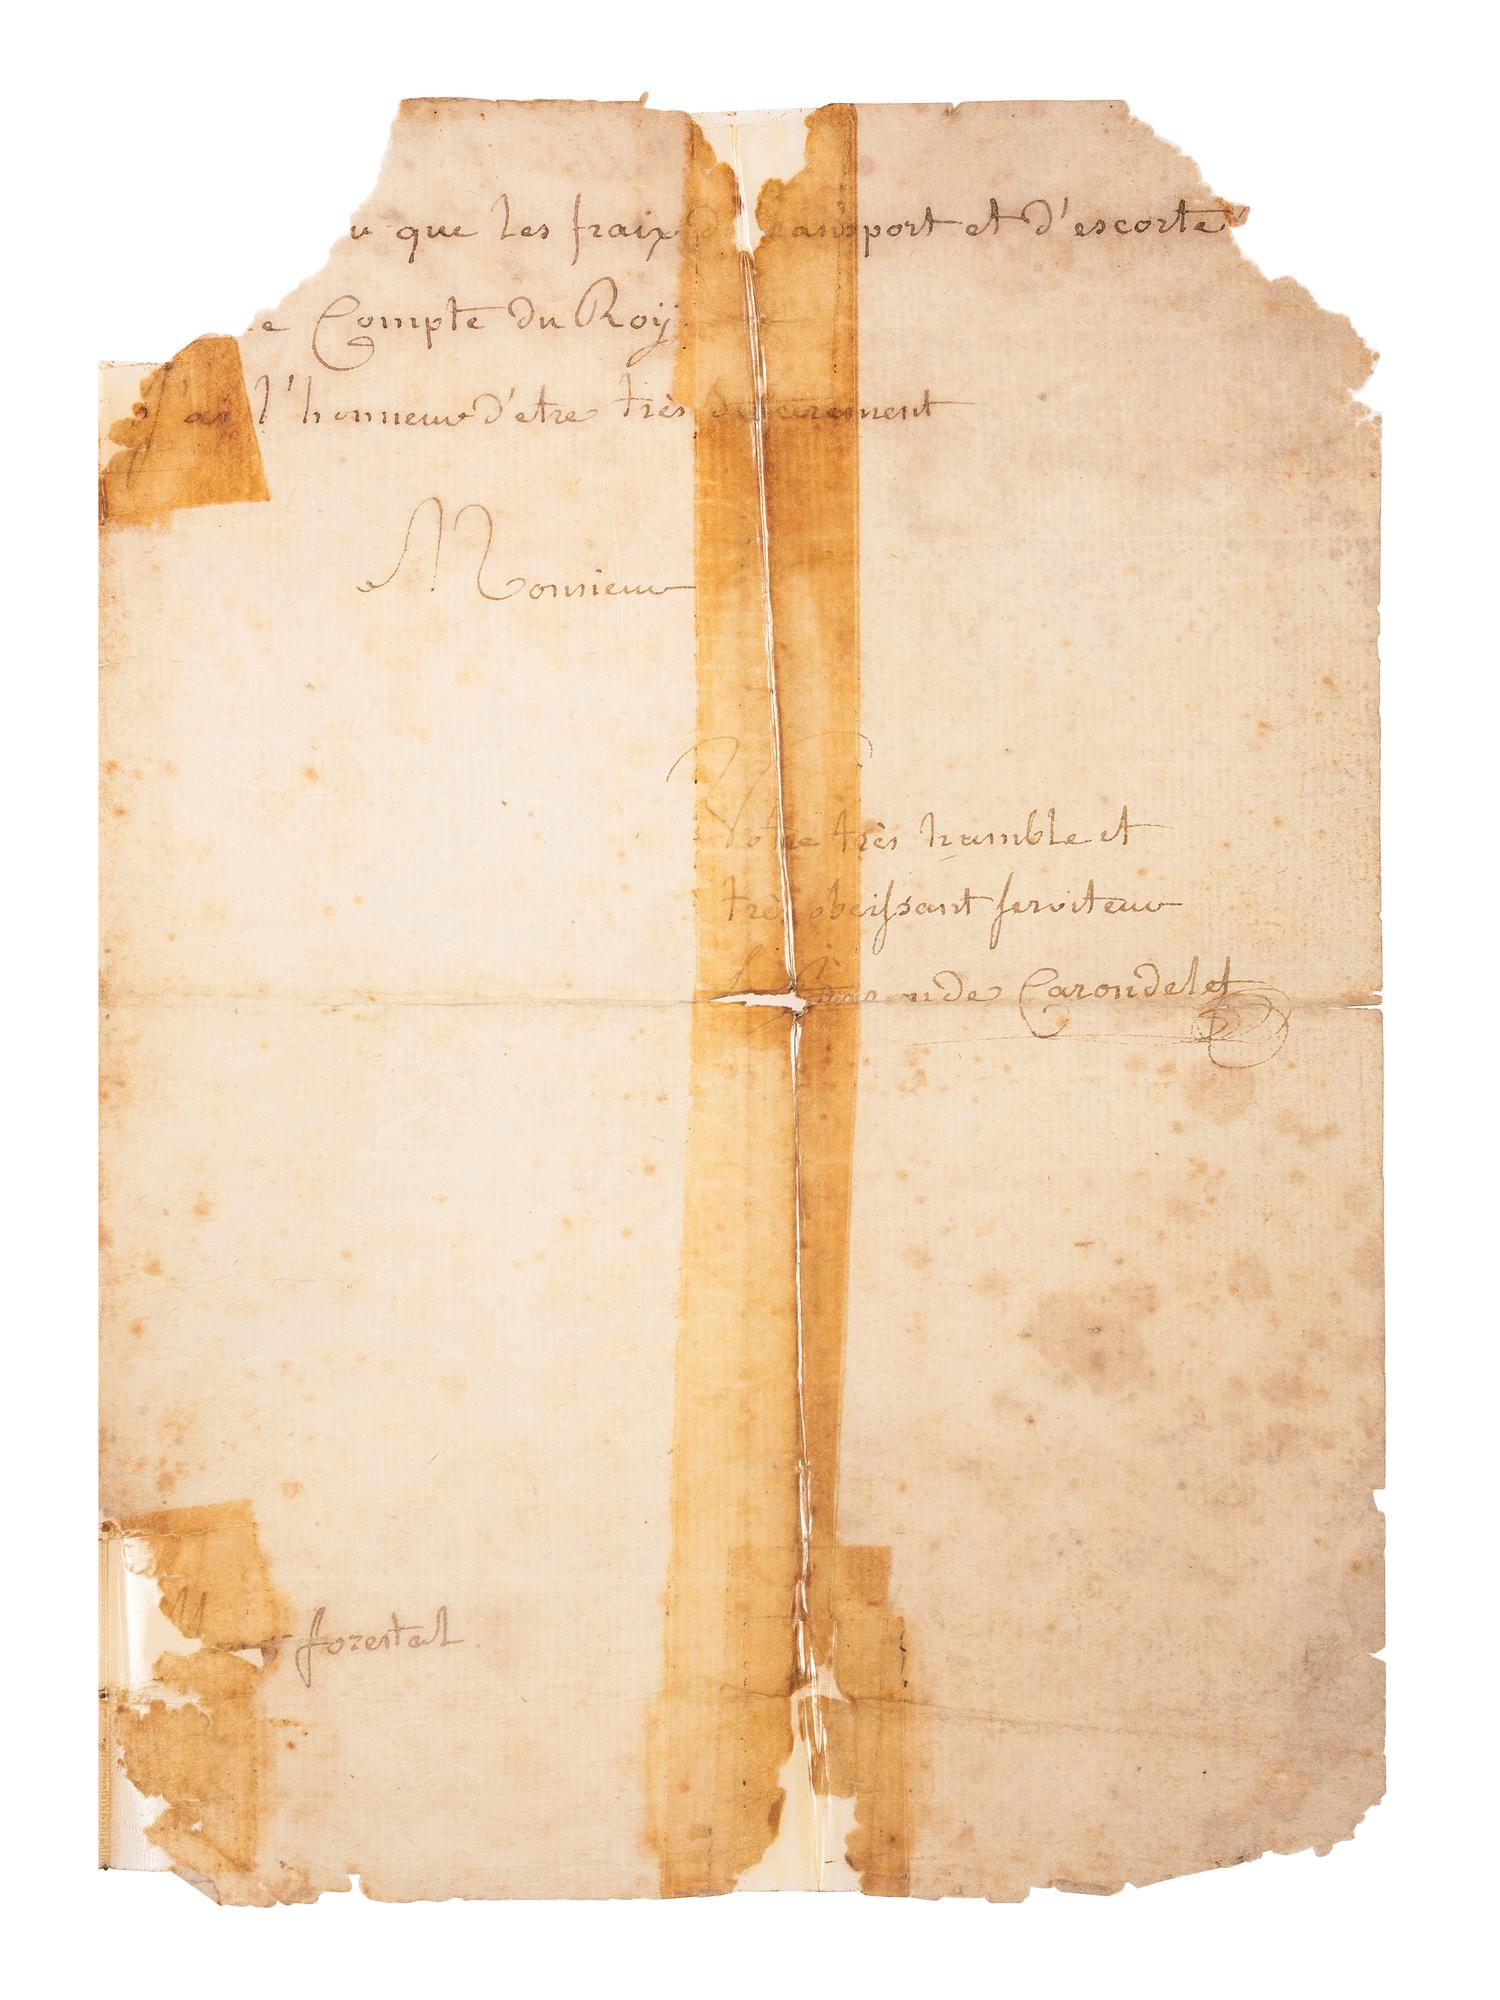 que les fraix de transport et d'escorte
Compte du Roy
J'ai l'honneur d'etre très sincerement
Monsieur
Votre très humble et
très obeissant serviteur
Le Baron de Carondelet
forestal